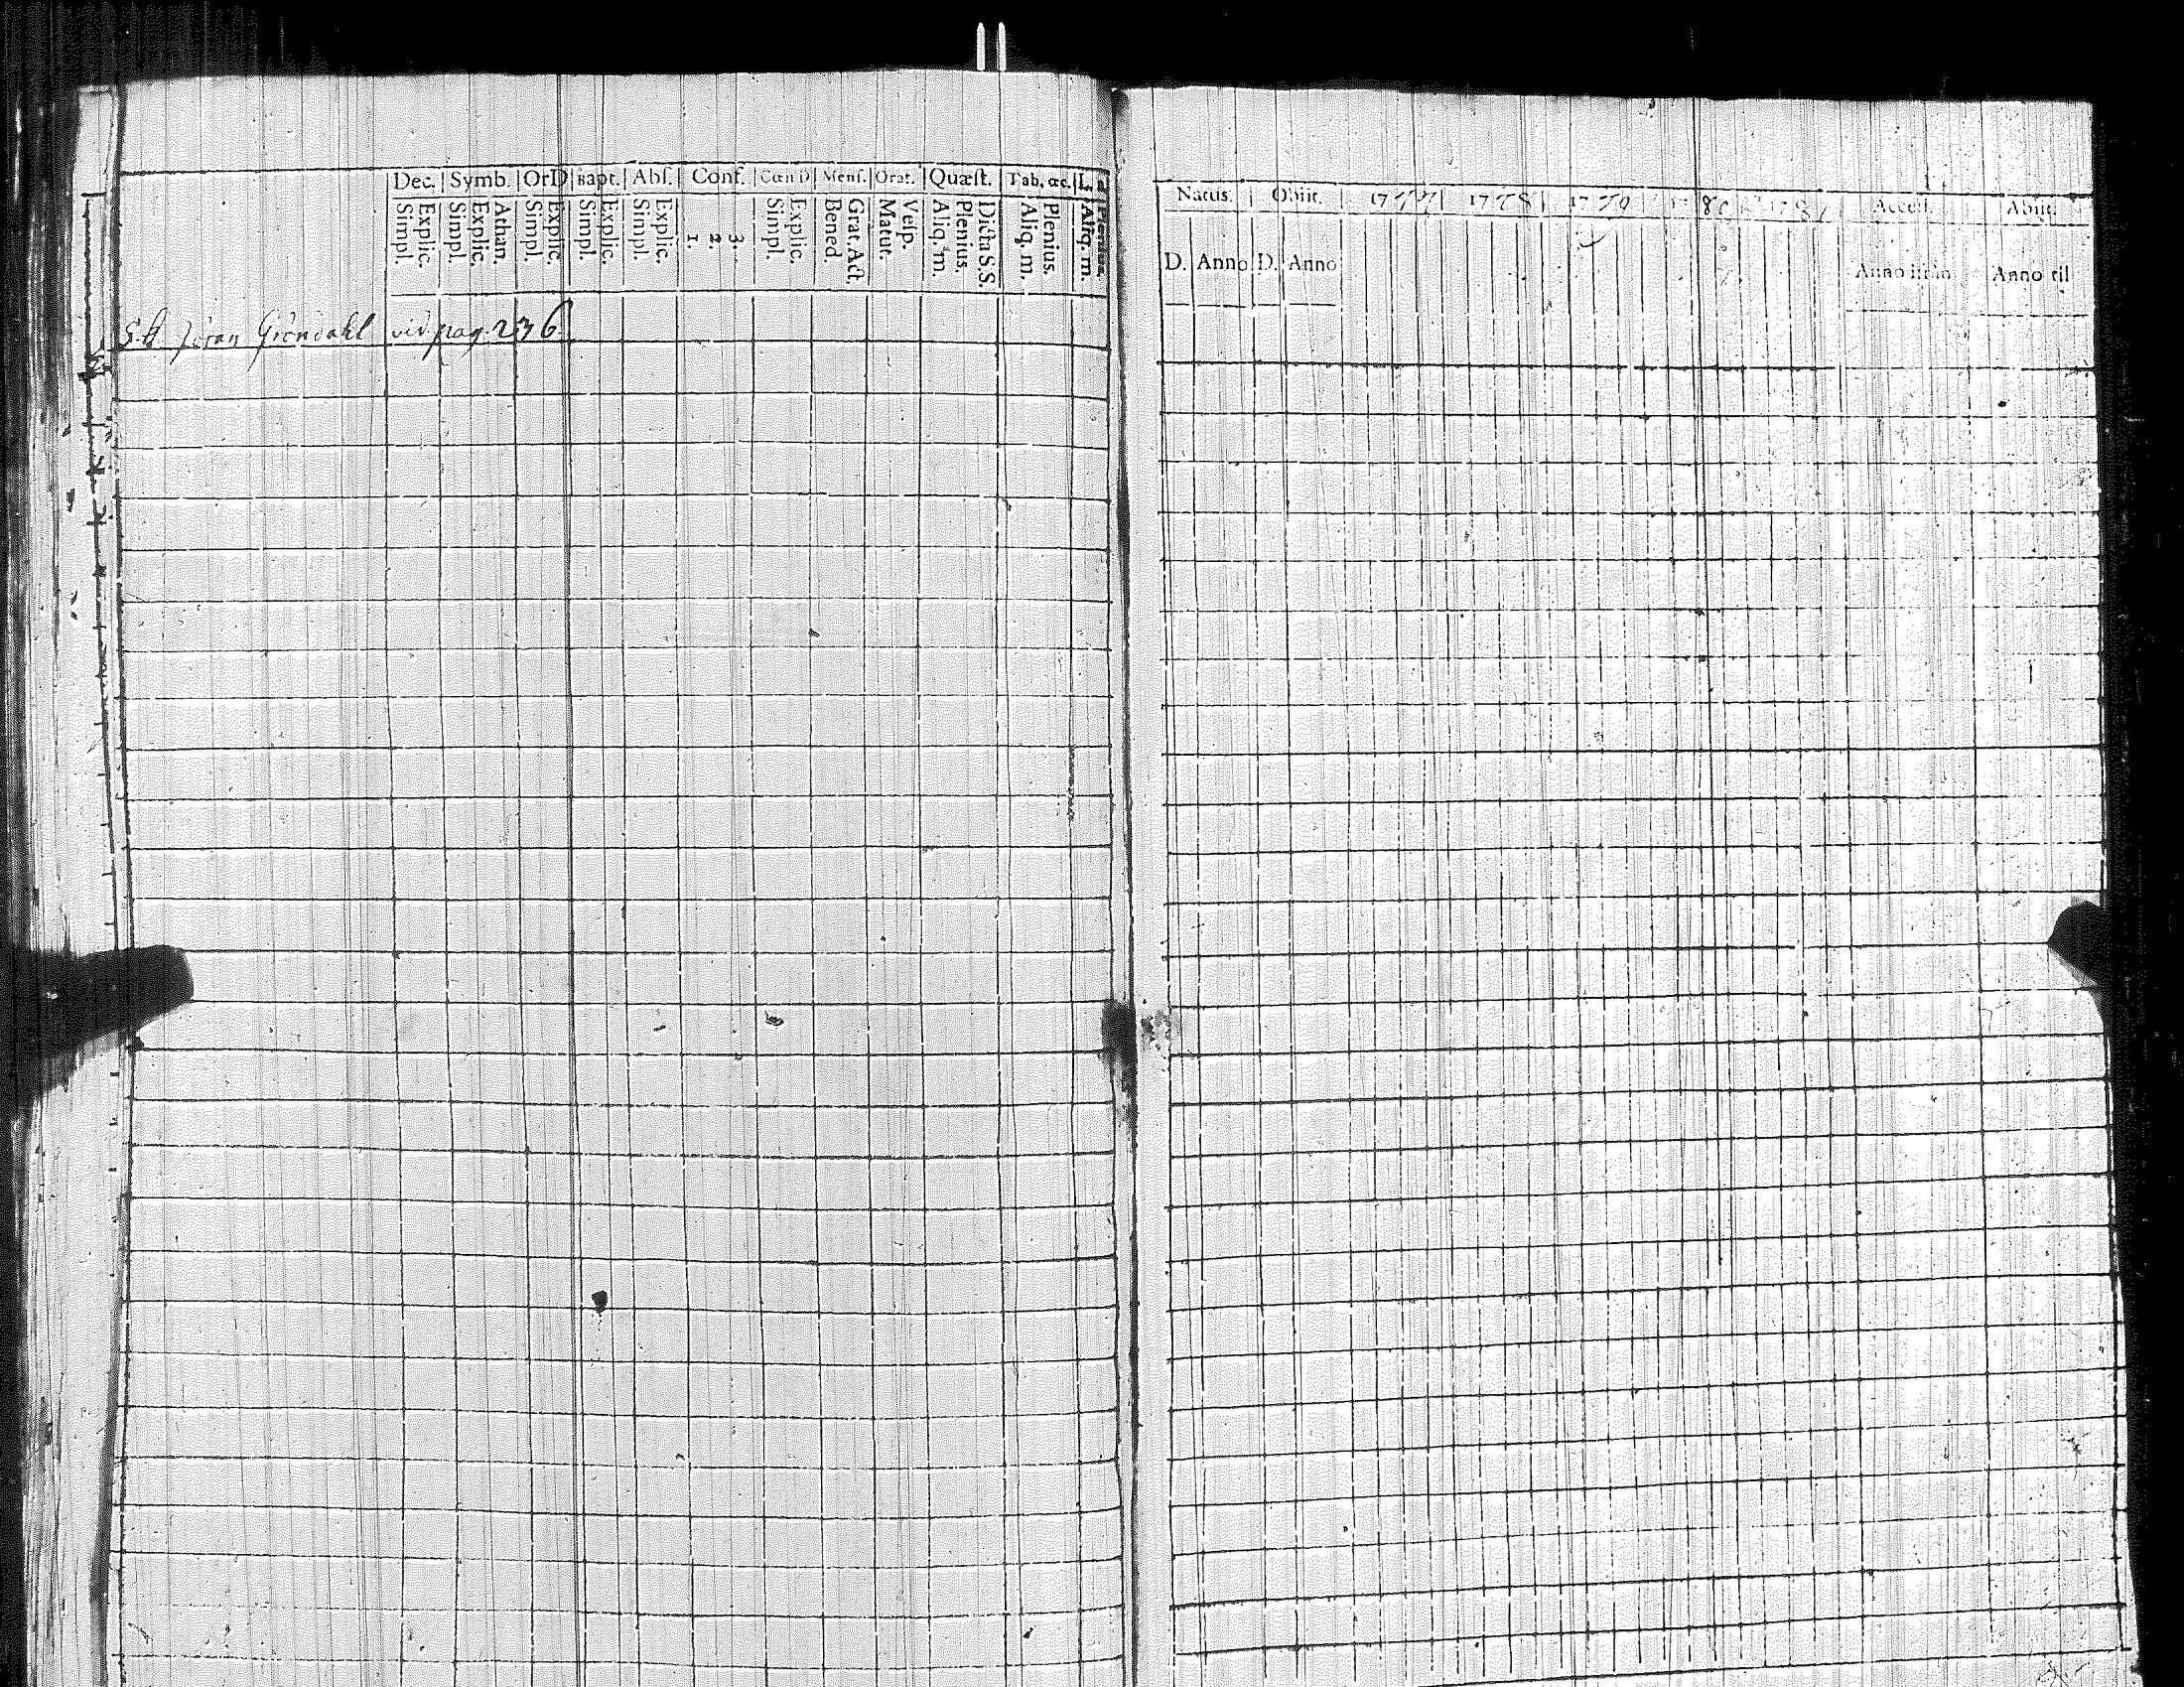 Dec. Symb. OrD Bapt. Abs. Conf. Cœn D Mens. Orat. Quæst. Tab. œc.
Simpl. Explic. Simpl. Explic. Athan. Simpl. Explic. Simpl. Explic. Simpl. Explic. 1. 2. 3. Simpl. Explic. Bened. Grat. Act. Matut. Vesp. Aliq. m. Plenius. Dicta S.S. Aliq. m. Plenius. Aliq. m. Plenius.
Göran Gröndahl vid pag. 236
Natus. Obiit. 1777 1778 1779 1780 1781 Access. Abiit.
D. Anno D. Anno Anno ifrån Anno til